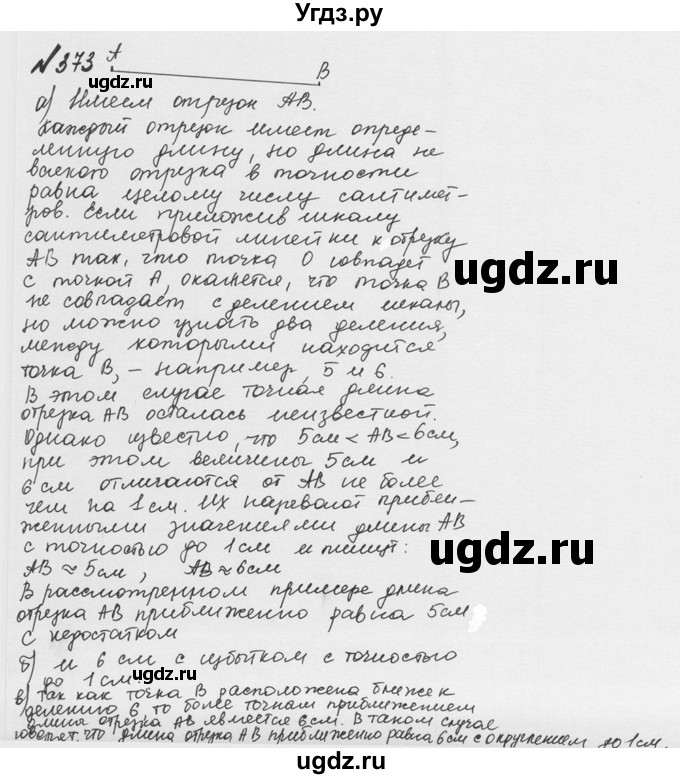 Угдз.ру
№373 A B
ugdz.ru ugdz.ru
а) Имеем отрезок АВ.
Каждый отрезок имеет опреде-
ленную длину, но длина не
всякого отрезка в точности
равна целому числу сантимет-
ров. Если приложив шкалу
сантиметровой линейки к отрезку
АВ так, что точка 0 совпадет
с точкой А, окажется, что точка В
ugdz.ru
не совпадает с делением шкалы,
но можно узнать два деления,
между которыми находится
точка В, – например, 5 и 6.
В этом случае точная длина
отрезка АВ осталась неизвестной.
Однако известно, что 5см < АВ < 6см,
при этом величины 5см и
6см отличаются от АВ не более
чем на 1см. Их называют прибли-
женными значениями длины АВ
с точностью до 1см и пишут:
ugdz.ru
АВ ≈ 5см, АВ ≈ 6см
В рассмотренном примере длина
отрезка АВ приближенно равна 5см
с недостатком
б) и 6см с избытком с точностью
до 1см.
ugdz.ru ugdz.ru
в) так как точка В расположена ближе к
делению 6, то более точным приближением
длина отрезка АВ является 6см. В таком случае
говорят, что длина отрезка АВ приближенно равна 6см с округлением до 1см.
ugdz.ru